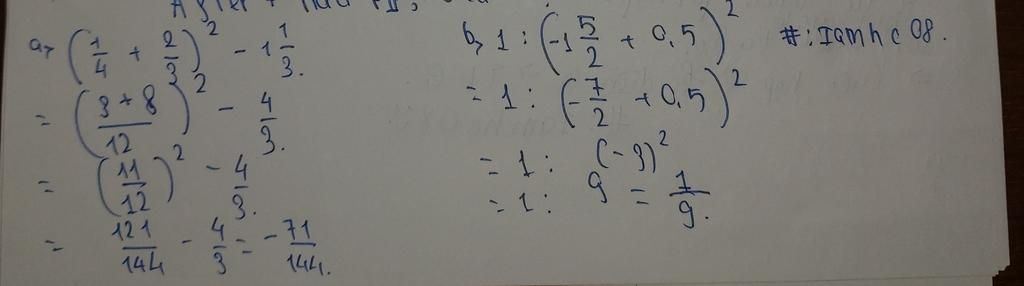 a, (1/4 + 2/3)² - 1 1/3.
= (3 + 8/12)² - 4/3.
= (11/12)² - 4/3.
= 121/144 - 4/3 = - 71/144.
b, 1 : (-1 5/2 + 0,5)²
= 1 : (-7/2 + 0,5)²
= 1 : (-3)²
= 1 : 9 = 1/9.
#:Iamhc08.